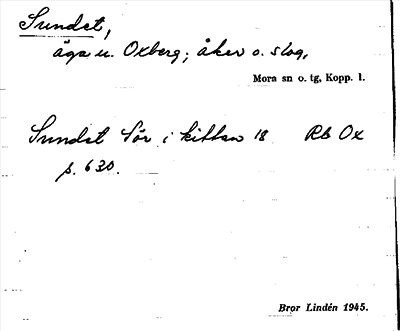 Sundet,
äga u. Oxberg; åker o. slog,
Mora sn o. tg, Kopp. l.
Sundet Sör i kittan 18 Rb Ox
s. 630.
Bror Lindén 1945.